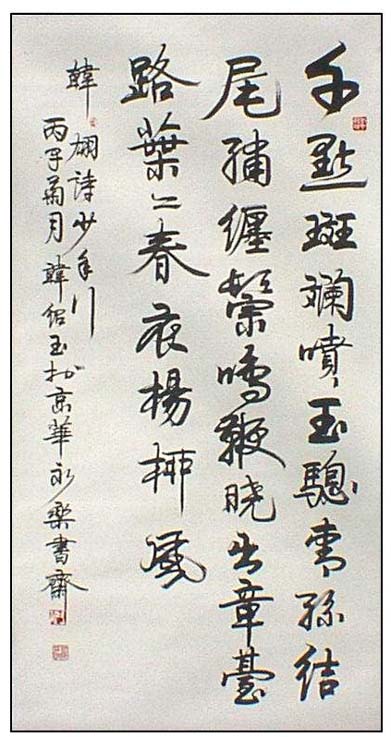 千點斑斕噴玉驄青絲結
尾繡纏鬃鳴鞭曉出章臺
路葉〻春衣楊柳風
韓翃詩少年行
丙子菊月韓紹玉於京華永樂書齋